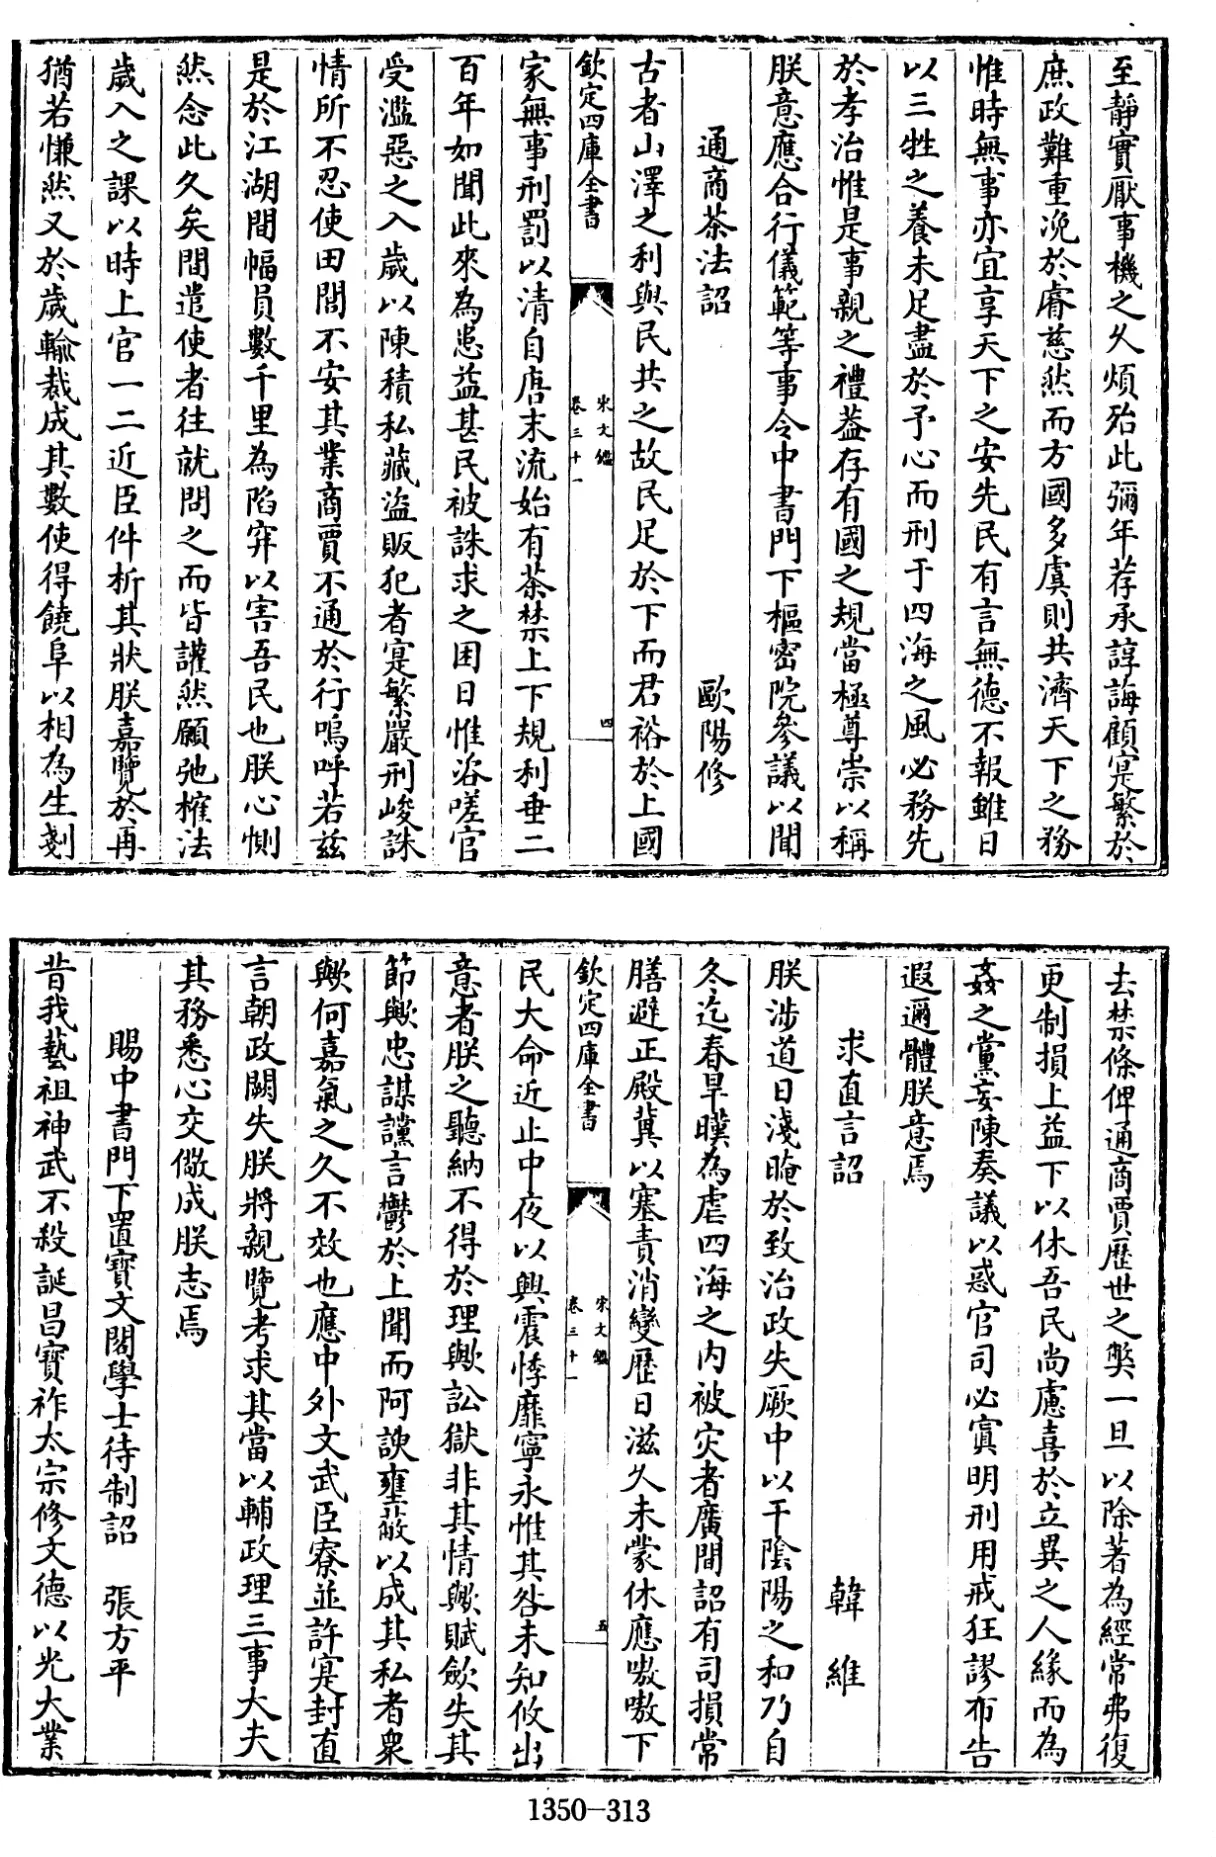 至靜實厭事機之久煩殆此彌年荐承諄誨顧寔繁於
庶政難重浼於睿慈然而方國多虞則共濟天下之務
惟時無事亦宜享天下之安先民有言無德不報雖日
以三牲之養未足盡於予心而刑于四海之風必務先
於孝治惟是事親之禮葢存有國之規當極尊崇以稱
朕意應合行儀範等事令中書門下樞密院參議以聞
通商茶法詔 歐陽修
古者山澤之利與民共之故民足於下而君裕於上國
欽定四庫全書 宋文鑑 卷三十一 四
家無事刑罰以清自唐末流始有茶禁上下規利垂二
百年如聞此來為患益甚民被誅求之困日惟咨嗟官
受濫惡之入歲以陳積私藏盜販犯者寔繁嚴刑峻誅
情所不忍使田閭不安其業商賈不通於行嗚呼若茲
是於江湖間幅員數千里為陷穽以害吾民也朕心惻
然念此久矣間遣使者往就問之而皆讙然願弛榷法
歲入之課以時上官一二近臣件析其狀朕嘉覽於再
猶若慊然又於歲輸裁成其數使得饒阜以相為生剗
去禁條俾通商賈歷世之弊一旦以除著為經常弗復
更制損上益下以休吾民尚慮喜於立異之人緣而為
姦之黨妄陳奏議以惑官司必寘明刑用戒狂謬布告
遐邇體朕意焉
求直言詔 韓維
朕涉道日淺晻於致治政失厥中以干陰陽之和乃自
冬迄春旱暵為虐四海之内被灾者廣間詔有司損常
膳避正殿冀以塞責消變歷日滋久未蒙休應嗷嗷下
欽定四庫全書 宋文鑑 卷三十一 五
民大命近止中夜以興震悸靡寧永惟其咎未知攸出
意者朕之聽納不得於理歟訟獄非其情歟賦斂失其
節歟忠謀讜言鬱於上聞而阿諛壅蔽以成其私者衆
歟何嘉氣之久不效也應中外文武臣寮並許寔封直
言朝政闕失朕將親覽考求其當以輔政理三事大夫
其務悉心交儆成朕志焉
賜中書門下置寳文閣學士待制詔 張方平
昔我藝祖神武不殺誕昌寳祚太宗修文德以光大業
1350-313